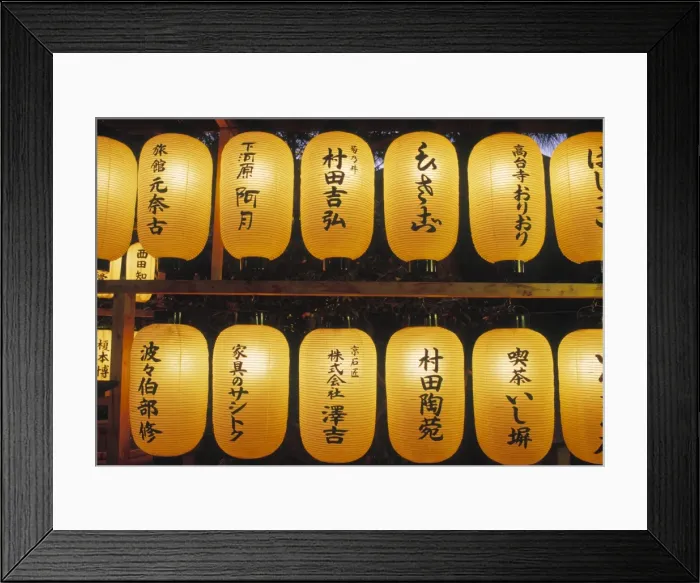 旅館 元奈古
下河原 阿月
菊乃井
村田吉弘
ひさご
高台寺 おりおり
西田知
榎本博
波々伯部修
家具のサシトク
京石匠
株式会社 澤吉
村田陶苑
喫茶 いし塀